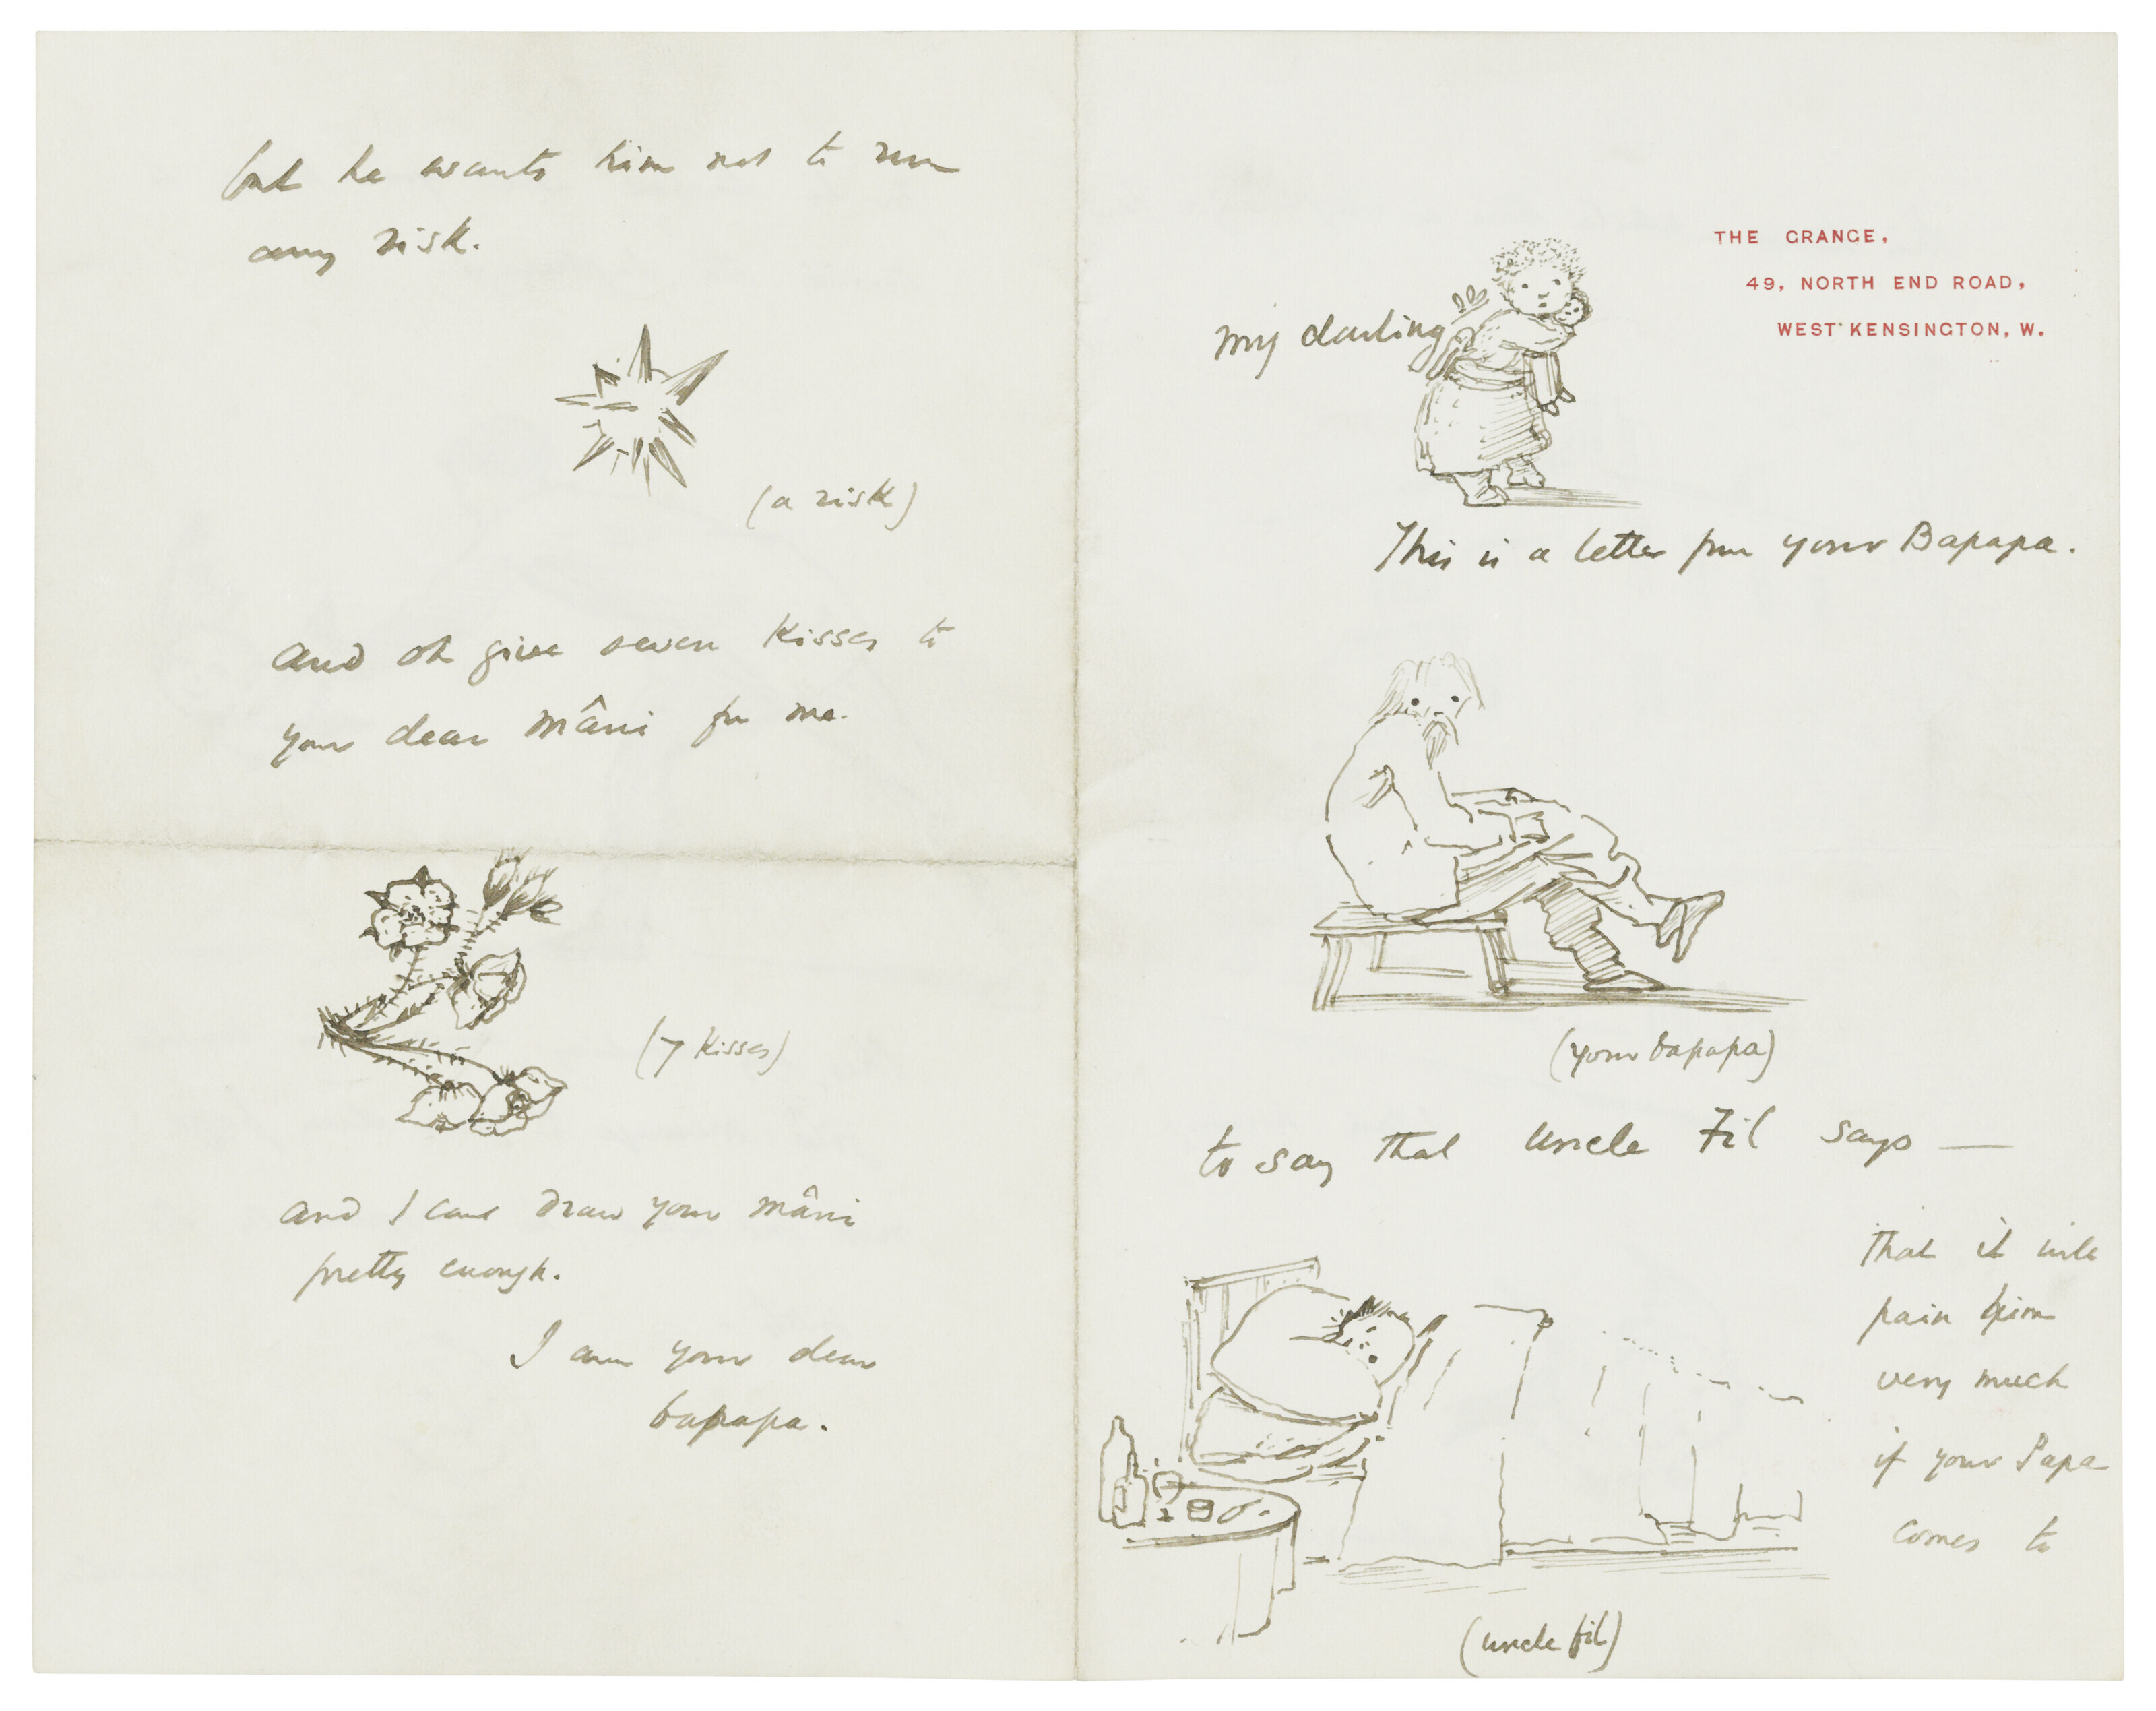 THE GRANGE,
49, NORTH END ROAD,
WEST KENSINGTON, W.
my darling
This is a letter from your Bapapa.
(your bapapa)
to say that uncle Fil says —
that it will
pain him
very much
if your Papa
comes to
(uncle fil)
but he wants him not to run
any risk.
(a risk)
and oh give seven kisses to
your dear mâni for me.
(7 kisses)
and I cant draw your mâni
pretty enough.
I am your dear
bapapa.